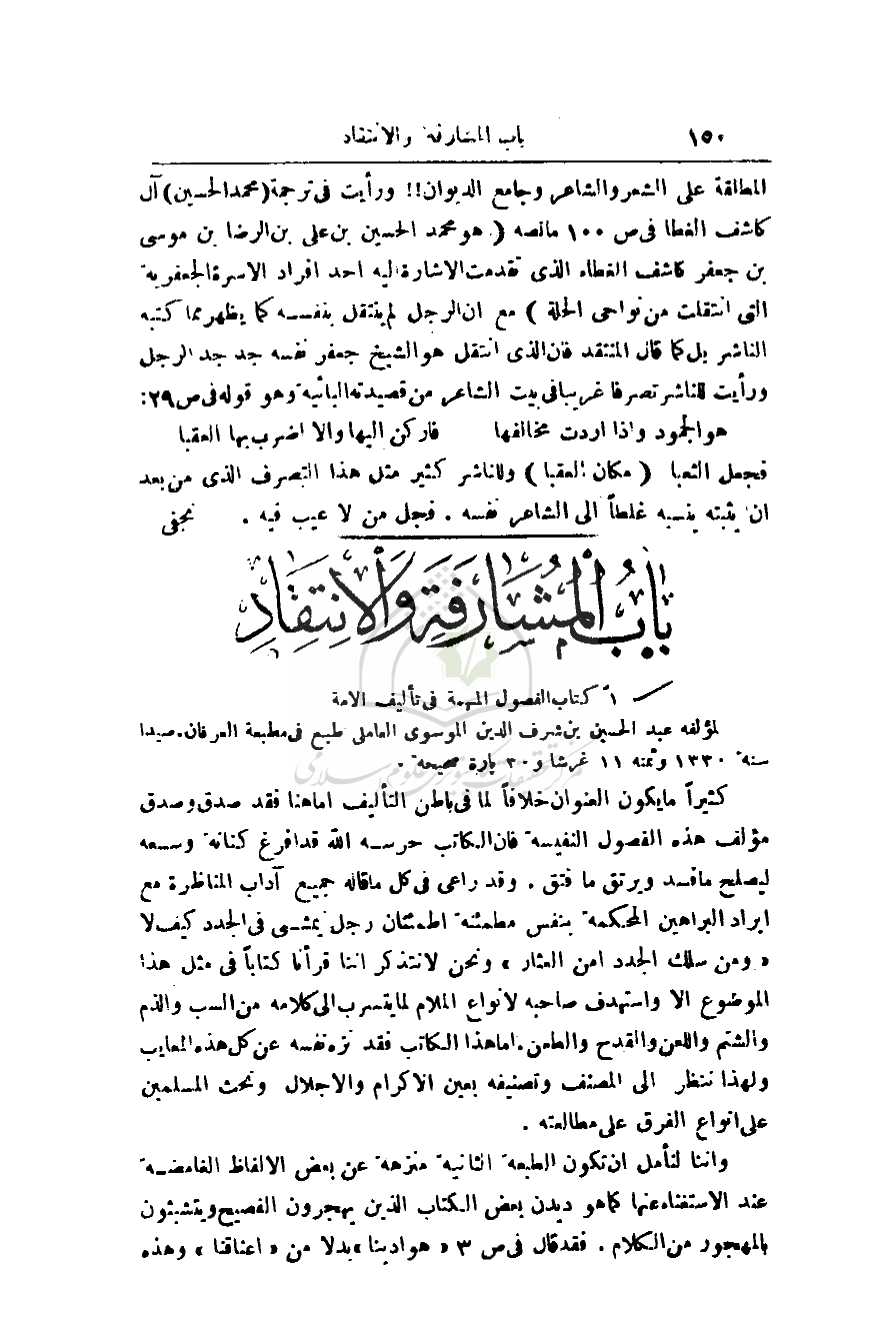 ١٥٠ باب المشارفة والانتقاد
المطلقة على الشعر والشاعر وجامع الديوان!! ورأيت فى ترجمة (محمد الحسين) آل
كاشف الغطا فى ص ١٠٠ مانصه ( هو محمد الحسين بن على بن الرضا بن موسى
بن جعفر كاشف الغطاء الذى تقدمت الاشارة اليه احد افراد الاسرة الجعفرية
التى انتقلت من نواحى الحلة ) مع ان الرجل لم ينتقل بنفسه كما يظهر مما كتبه
الناشر بل كما قال المنتقد فان الذى انتقل هو الشيخ جعفر نفسه جد جد الرجل
ورأيت للناشر تصرفا غريبا فى بيت الشاعر من قصيدته البائية وهو قوله فى ص ٢٩:
هو الجمود واذا اردت مخالفها فاركن اليها والا اضرب بها العقبا
فجعل الثعبا ( مكان العقبا ) وللناشر كثير مثل هذا التصرف الذى من بعد
ان يثبته ينسبه غلطاً الى الشاعر نفسه . فجل من لا عيب فيه . نجفى
باب المشارفة والانتقاد
١ً كتاب الفصول المهمة فى تأليف الامة
لمؤلفه عبد الحسين بن شرف الدين الموسوى العاملى طبع فى مطبعة العرفان . صيدا
سنة ١٣٣٠ وثمنه ١١ غرشا و ٣٠ بارة صحيحة .
كثيراً مايكون العنوان خلافاً لما فى باطن التأليف اما هنا فقد صدق وصدق
مؤلف هذه الفصول النفيسة فان الكاتب حرسه الله قد افرغ كنانة وسعه
ليصلح مافسد ويرتق ما فتق . وقد راعى فى كل ماقاله جميع آداب المناظرة مع
ايراد البراهين المحكمة بنفس مطمئنة اطمئنان رجل يمشى فى الجدد كيف لا
« ومن سلك الجدد امن العثار » ونحن لانتذكر اننا قرأنا كتاباً فى مثل هذا
الموضوع الا واستهدف صاحبه لانواع الملام لما يتسرب الى كلامه من السب والذم
والشتم واللعن والقدح والطعن . اما هذا الكاتب فقد نزه نفسه عن كل هذه المعايب
ولهذا ننظر الى المصنف وتصنيفه بعين الاكرام والاجلال ونحث المسلمين
على انواع الفرق على مطالعته .
واننا لنأمل ان تكون الطبعة الثانية منزهة عن بعض الالفاظ الغامضة
عند الاستغناء عنها كما هو ديدن بعض الكتاب الذين يهجرون الفصيح ويتشبثون
بالمهجور من الكلام . فقد قال فى ص ٣ « هوادينا » بدلا من « اعناقنا » وهذه
مركز تحقيقات كامپيوترى علوم اسلامى